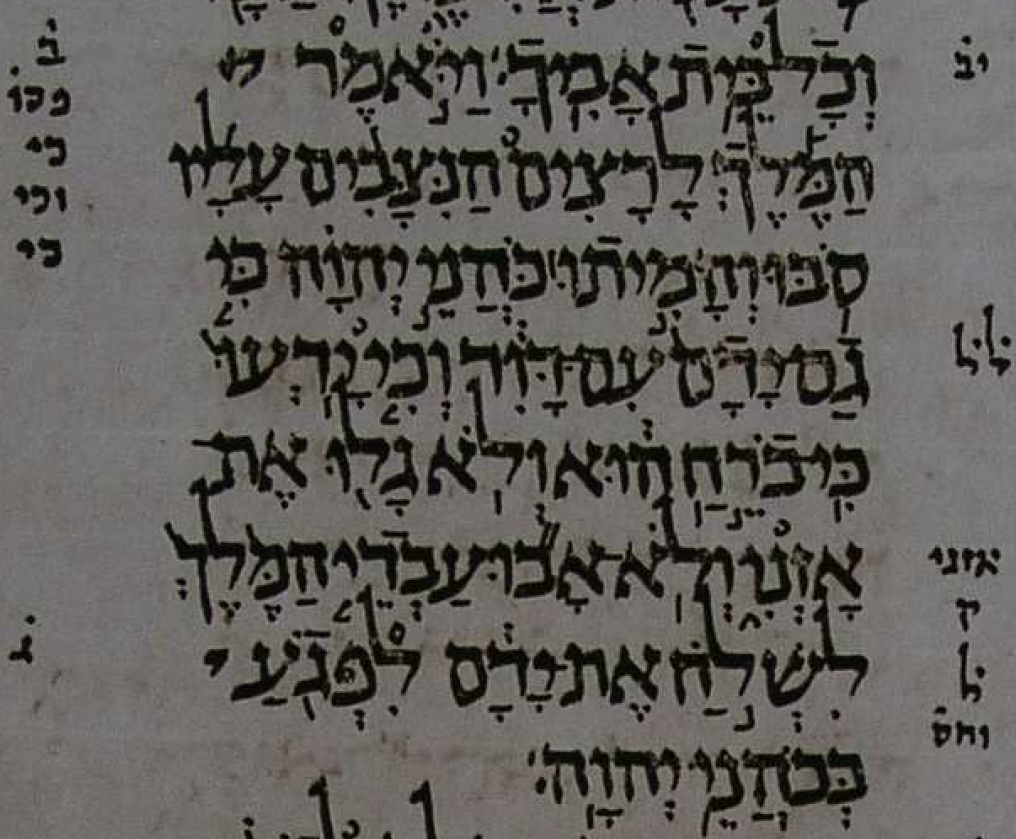 וְכָל בֵּית אָבִיךָ׃ וַיֹּאמֶר
הַמֶּלֶךְ לָרָצִים הַנִּצָּבִים עָלָיו
סֹבּוּ וְהָמִיתוּ כֹּהֲנֵי יְהוָה כִּי
גַם יָדָם עִם דָּוִד וְכִי יָדְעוּ
כִּי בֹרֵחַ הוּא וְלֹא גָלוּ אֶת
אָזְנִו וְלֹא אָבוּ עַבְדֵי הַמֶּלֶךְ
לִשְׁלֹחַ אֶת יָדָם לִפְגֹעַ
בְּכֹהֲנֵי יְהוָה׃
יב
ל ל
אזני
ק
ל
וחס
ב
כי
וכי
כי